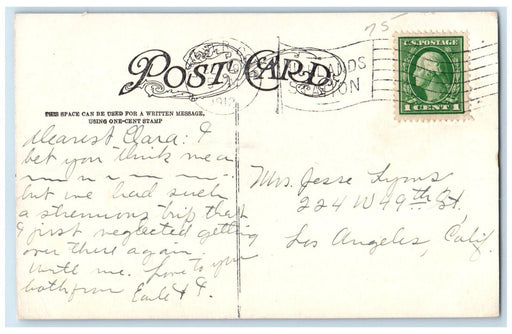 75-
POST CARD
U.S. POSTAGE
1 CENT 1
THIS SPACE CAN BE USED FOR A WRITTEN MESSAGE,
USING ONE-CENT STAMP
Dearest Clara: I
bet you think me a
~ ~ ~ ~ ~
but we had such
a strenuous trip that
I just neglected getting
over there again.
Write me. Love to you
both from Earle & F.
Mrs. Jesse Lyons
224 W 49th St.
Los Angeles, Calif.